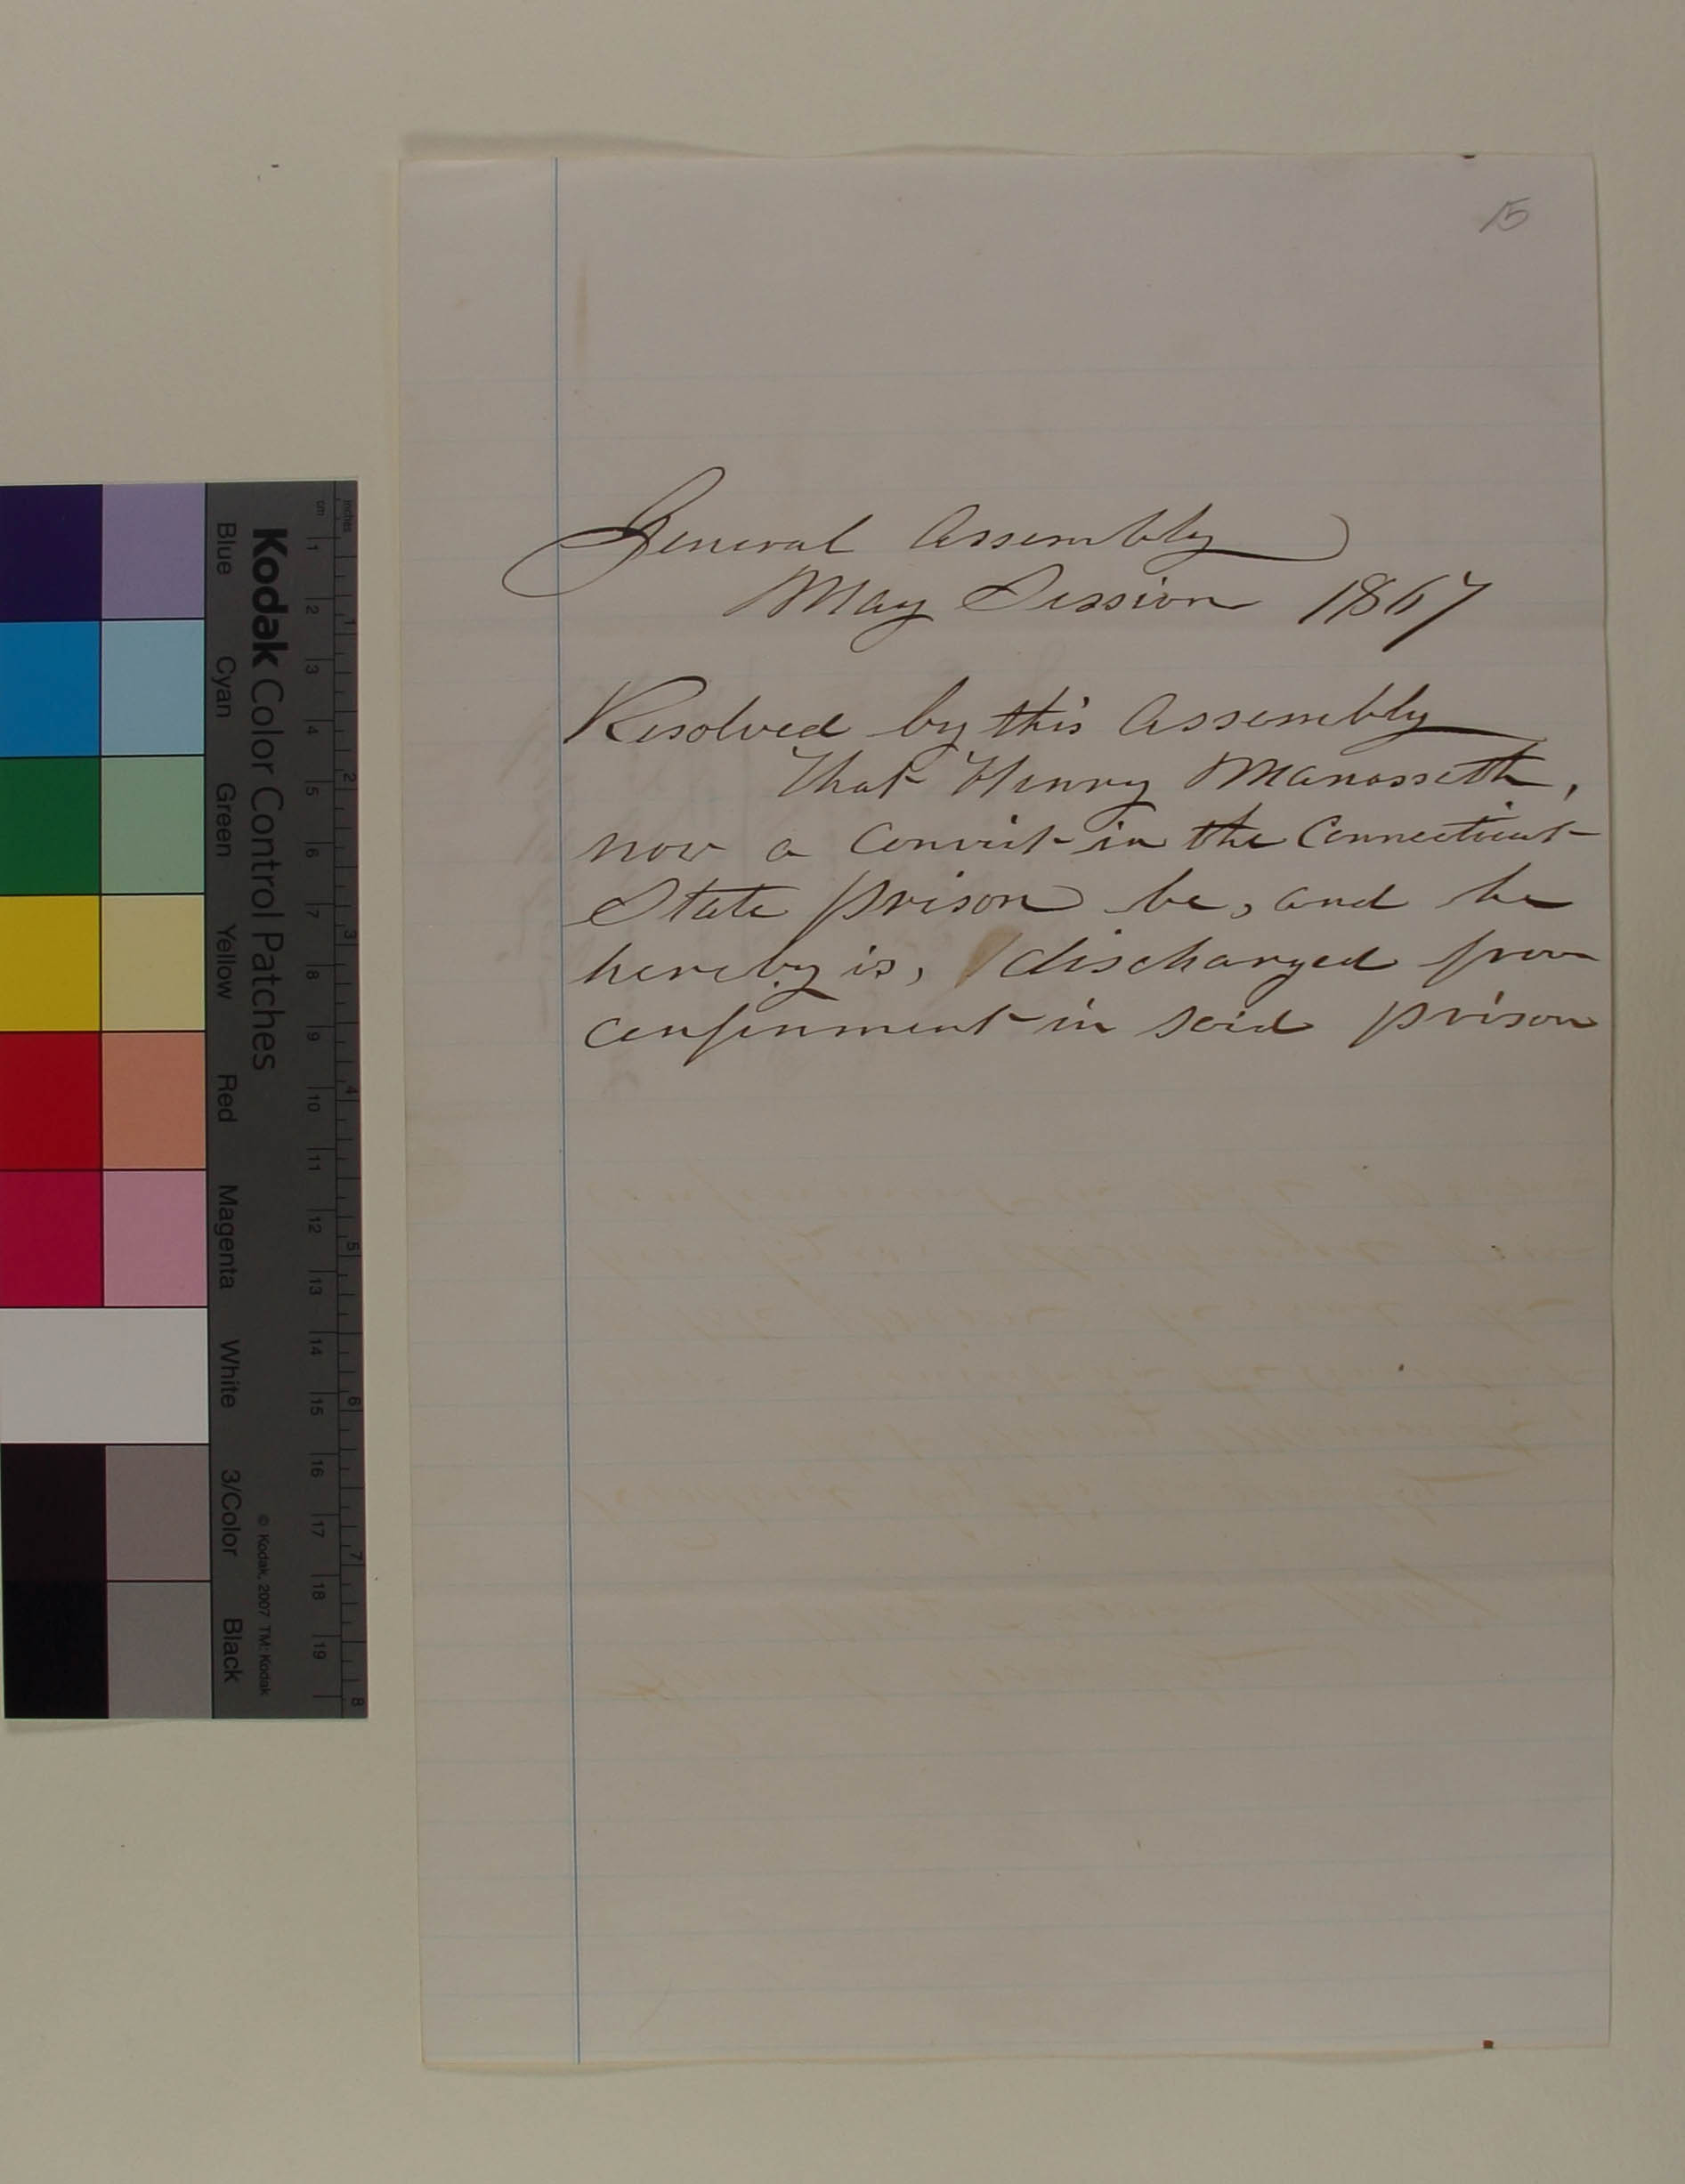 15
General Assembly
May Session 1867
Resolved by this Assembly
That Henry Manasseth,
now a Convict in the Connecticut
State prison be, and he
hereby is, discharged from
confinment in said prison
Kodak Color Control Patches
Blue Cyan Green Yellow Red Magenta White 3/Color Black
© Kodak, 2007 TM: Kodak
inches 1 2 3 4 5 6 7 8
cm 1 2 3 4 5 6 7 8 9 10 11 12 13 14 15 16 17 18 19